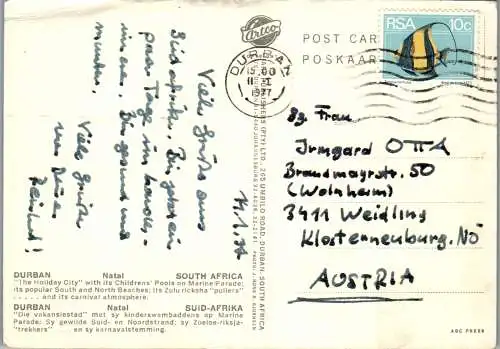 Artco
POST CAR
POSKAAR
RSA 10c
DURBAN
15.00
11 I
1977
11.1.77
Viele Grüße aus
Südafrika. Bin schon ein
paar Tage im Landes-
inneren. Bin gesund und
munter.
Viele Grüße
von Deinem
Sg. Frau
Irmgard OTTA
Brandmayrstr. 50
(Wolnheim)
3411 Weidling
Klosterneuburg, NÖ
AUSTRIA
(PTY) LTD., 205 UMBILO ROAD, DURBAN, SOUTH AFRICA
DURBAN Natal SOUTH AFRICA
"The Holiday City" with its Childrens' Pools on Marine Parade;
its popular South and North Beaches; its Zulu ricksha "pullers"
..... and its carnival atmosphere.
DURBAN Natal SUID-AFRIKA
"Die vakansiestad" met sy kinderswembaddens op Marine
Parade; Sy gewilde Suid- en Noordstrand; sy Zoeloe-riksja-
"trekkers" en sy karnavalstemming.
ABC PRESS